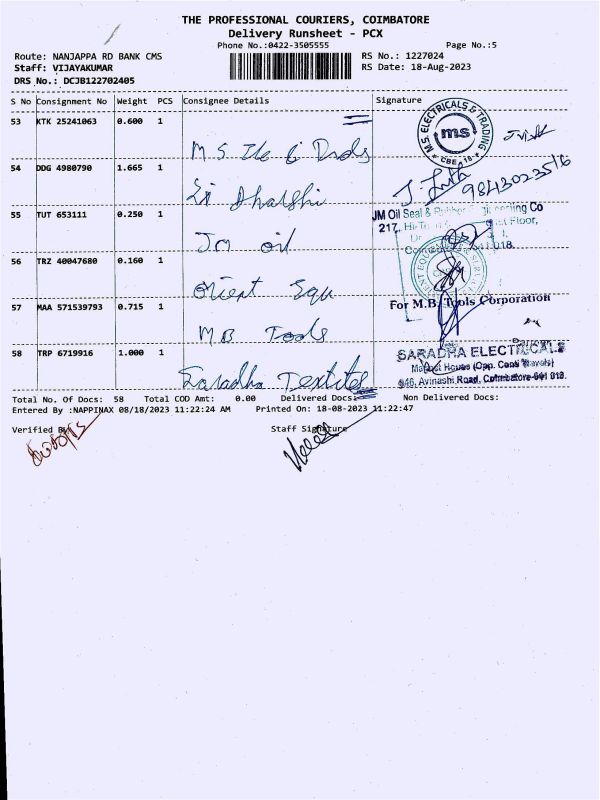 THE PROFESSIONAL COURIERS, COIMBATORE
Delivery Runsheet - PCX
Phone No.:0422-3505555
Page No.:5
Route: NANJAPPA RD BANK CMS
RS No.: 1227024
Staff: VIJAYAKUMAR
RS Date: 18-Aug-2023
DRS No.: DCJB122702405
S No Consignment No Weight PCS Consignee Details Signature
53 KTK 25241063 0.600 1
M.S. Ele
M.S ELECTRICALS & TRADING
ms
CBE A 18
54 DDG 4980790 1.665 1
Sri Dharshi
9843023516
55 TUT 653111 0.250 1
JM oil
JM Oil Seal &
217,
Floor,
56 TRZ 40047680 0.160 1
Orient Equ
57 MAA 571539793 0.715 1
MB Tools
For M.B. Tools Corporation
58 TRP 6719916 1.000 1
Saradha Textiles
SARADHA ELECTRICALS
House (Opp.
Avinashi Road, Coimbatore-641 018.
Total No. Of Docs: 58 Total COD Amt: 0.00 Delivered Docs: Non Delivered Docs:
Entered By :NAPPINAX 08/18/2023 11:22:24 AM Printed On: 18-08-2023 11:22:47
Verified By
Staff Signature